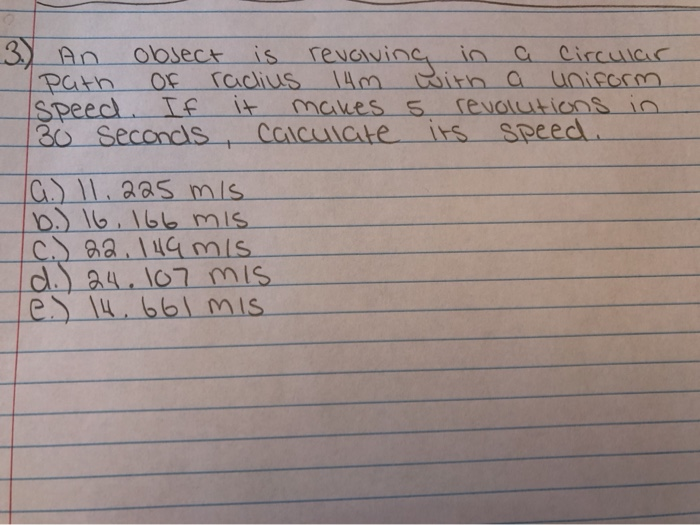 3.) An object is revolving in a circular
path of radius 14m with a uniform
speed. If it makes 5 revolutions in
30 seconds, calculate its speed.
a.) 11.225 m/s
b.) 16.166 m/s
c.) 22.149 m/s
d.) 24.107 m/s
e.) 14.661 m/s